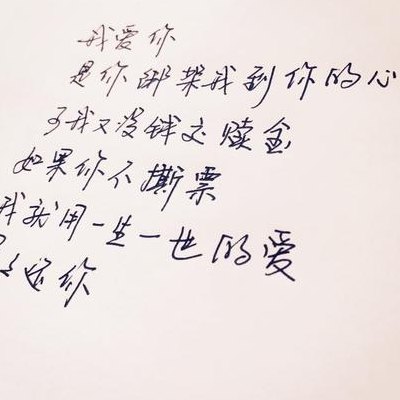 我爱你
是你绑架我到你的心
可我又没钱交赎金
如果你不撕票
我就用一生一世的爱
还你